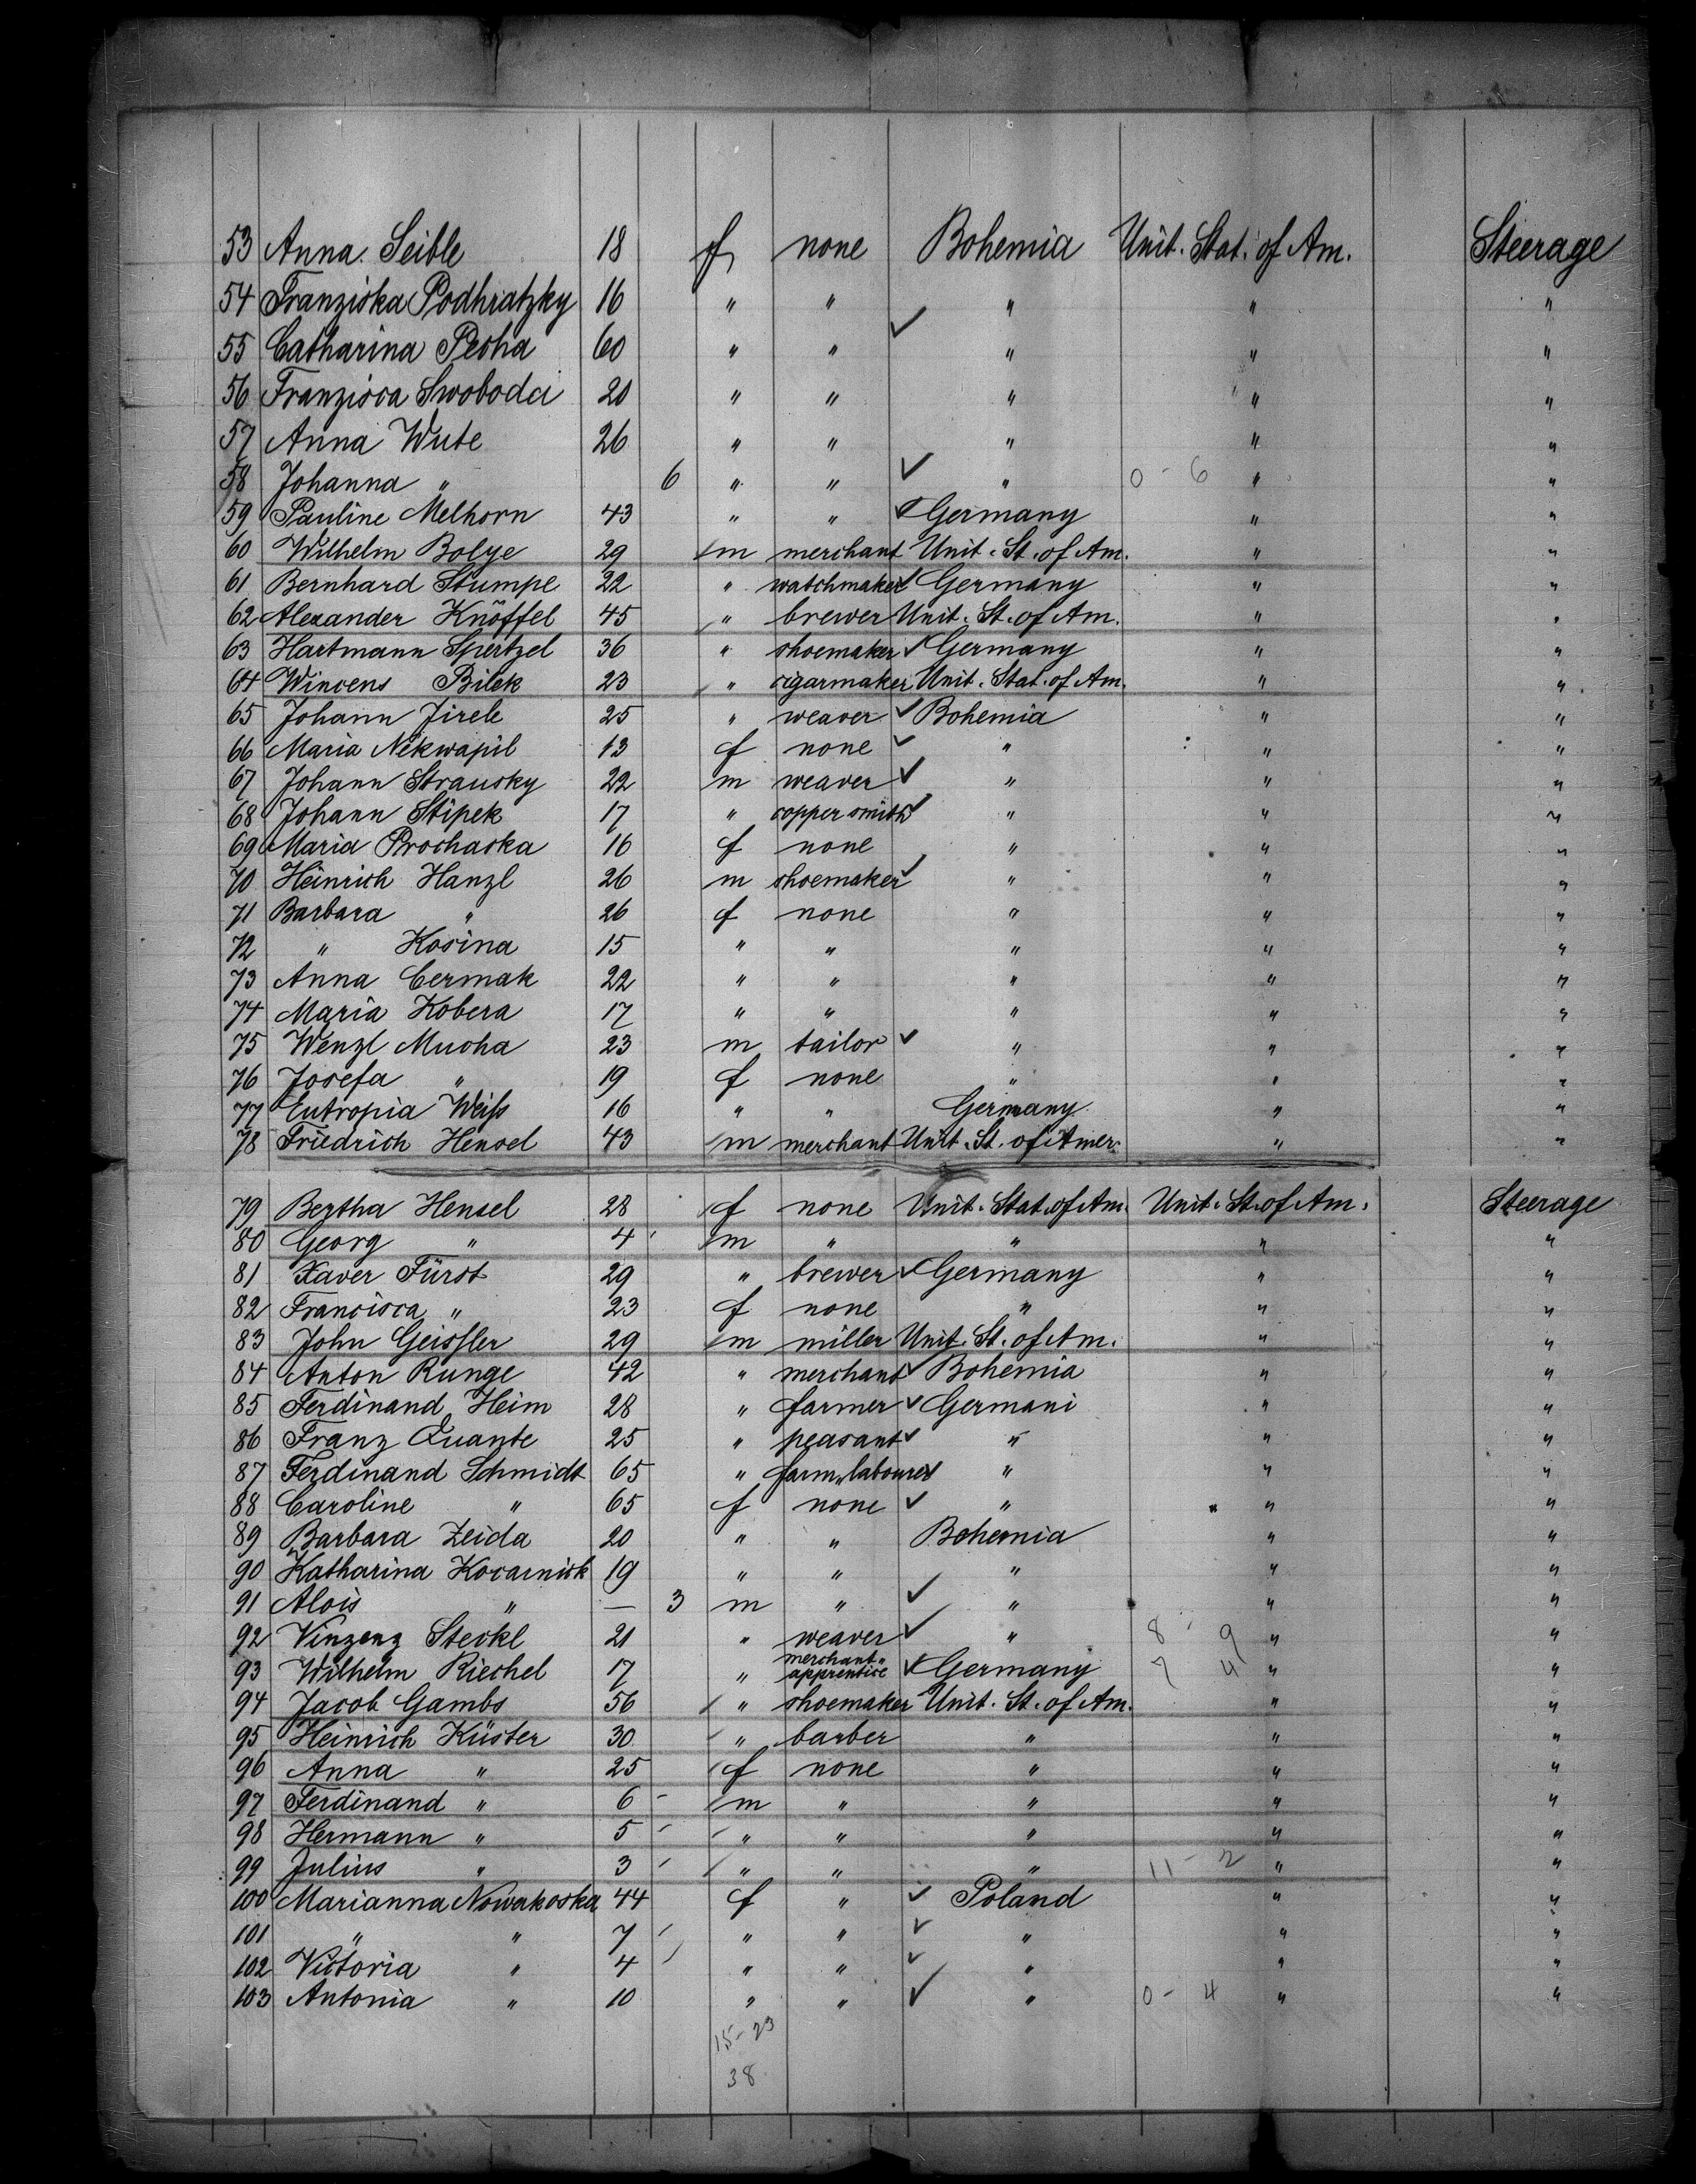 53 Anna Seible 18 f none Bohemia Unit. Stat. of Am. Steerage
54 Franziska Podhratzky 16 " " " " "
55 Catharina Pecha 60 " " " " "
56 Franzisca Swoboda 20 " " " " "
57 Anna Wute 26 " " " " "
58 Johanna " 6 " " " 0 - 6 " "
59 Pauline Melhorn 43 " " Germany " "
60 Wilhelm Bolye 29 m merchant Unit. St. of Am. " "
61 Bernhard Stumpe 22 " watchmaker Germany " "
62 Alexander Knöffel 45 " brewer Unit. St. of Am. " "
63 Hartmann Spertzel 36 " shoemaker Germany " "
64 Wincens Bilek 23 " cigarmaker Unit. Stat. of Am. " "
65 Johann Jirele 25 " weaver Bohemia " "
66 Maria Nekwapil 13 f none " " "
67 Johann Strausky 22 m weaver " " "
68 Johann Stipek 17 " copper smith " " "
69 Maria Prochaska 16 f none " " "
70 Heinrich Hanzl 26 m shoemaker " " "
71 Barbara " 26 f none " " "
72 " Kosina 15 " " " " "
73 Anna Cermak 22 " " " " "
74 Maria Kobera 17 " " " " "
75 Wenzl Mucha 23 m tailor " " "
76 Josefa " 19 f none " " "
77 Eutropia Weiß 16 " " Germany " "
78 Friedrich Hensel 43 m merchant Unit. St. of Amer. " "
79 Bertha Hensel 28 f none Unit. Stat. of Am. Unit. St. of Am. Steerage
80 Georg " 4 m " " " "
81 Xaver Fürst 29 " brewer Germany " "
82 Francisca " 23 f none " " "
83 John Geissler 29 m miller Unit. St. of Am. " "
84 Anton Runge 42 " merchant Bohemia " "
85 Ferdinand Heim 28 " farmer Germani " "
86 Franz Quante 25 " peasant " " "
87 Ferdinand Schmidt 65 " farm labourer " " "
88 Caroline " 65 f none " " "
89 Barbara Zeida 20 " " Bohemia " "
90 Katharina Kocarnick 19 " " " " "
91 Alois " — 3 m " " " "
92 Vinzenz Steckl 21 " weaver " 8 - 9 " "
93 Wilhelm Riechel 17 " merchant" apprentice Germany 7 4 " "
94 Jacob Gambs 56 " shoemaker Unit. St. of Am. " "
95 Heinrich Küster 30 " barber " " "
96 Anna " 25 f none " " "
97 Ferdinand " 6 m " " " "
98 Hermann " 5 " " " " "
99 Julius " 3 " " " 11 - 2 " "
100 Marianna Nowakoska 44 f " Poland " "
101 " " 7 " " " " "
102 Victoria " 4 " " " " "
103 Antonia " 10 " " " 0 - 4 " "
15 - 23
38